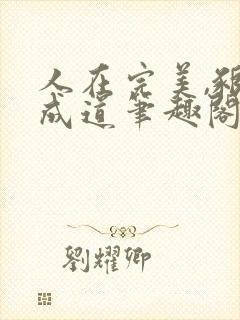 人在完美,
成道筆趣閣
劉耀卿